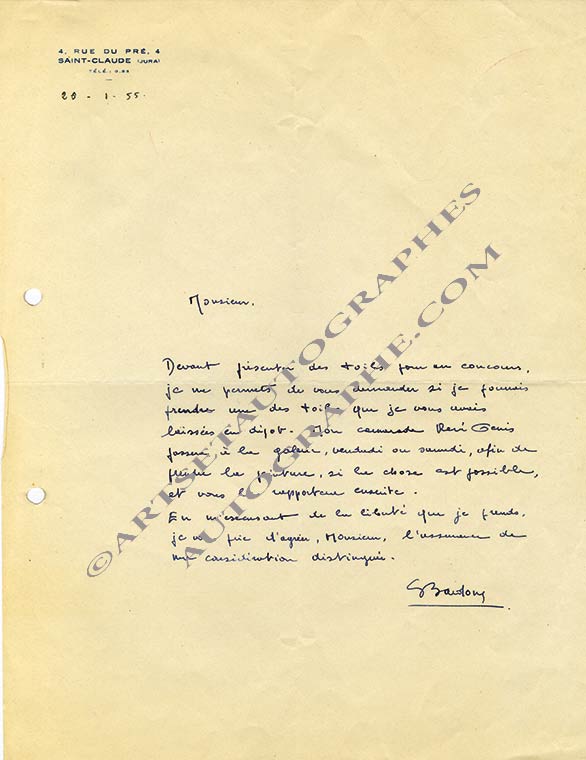 4, RUE DU PRÉ, 4
SAINT-CLAUDE (JURA)
TÉLÉ :
28 - 1 - 55.
Monsieur.
Devant présenter des toiles pour un concours,
je me permets de vous demander si je pouvais
prendre une des toiles que je vous avais
laissées en dépot. Mon camarade René Genis
passera à la galerie, vendredi ou samedi, afin de
prendre la peinture, si la chose est possible,
et vous la rapportera ensuite.
En m'excusant de la liberté que je prends,
je vous prie d'agréer, Monsieur, l'assurance de
ma considération distinguée.
GBardone
©ARTSETAUTOGRAPHES
AUTOGRAPHE.COM